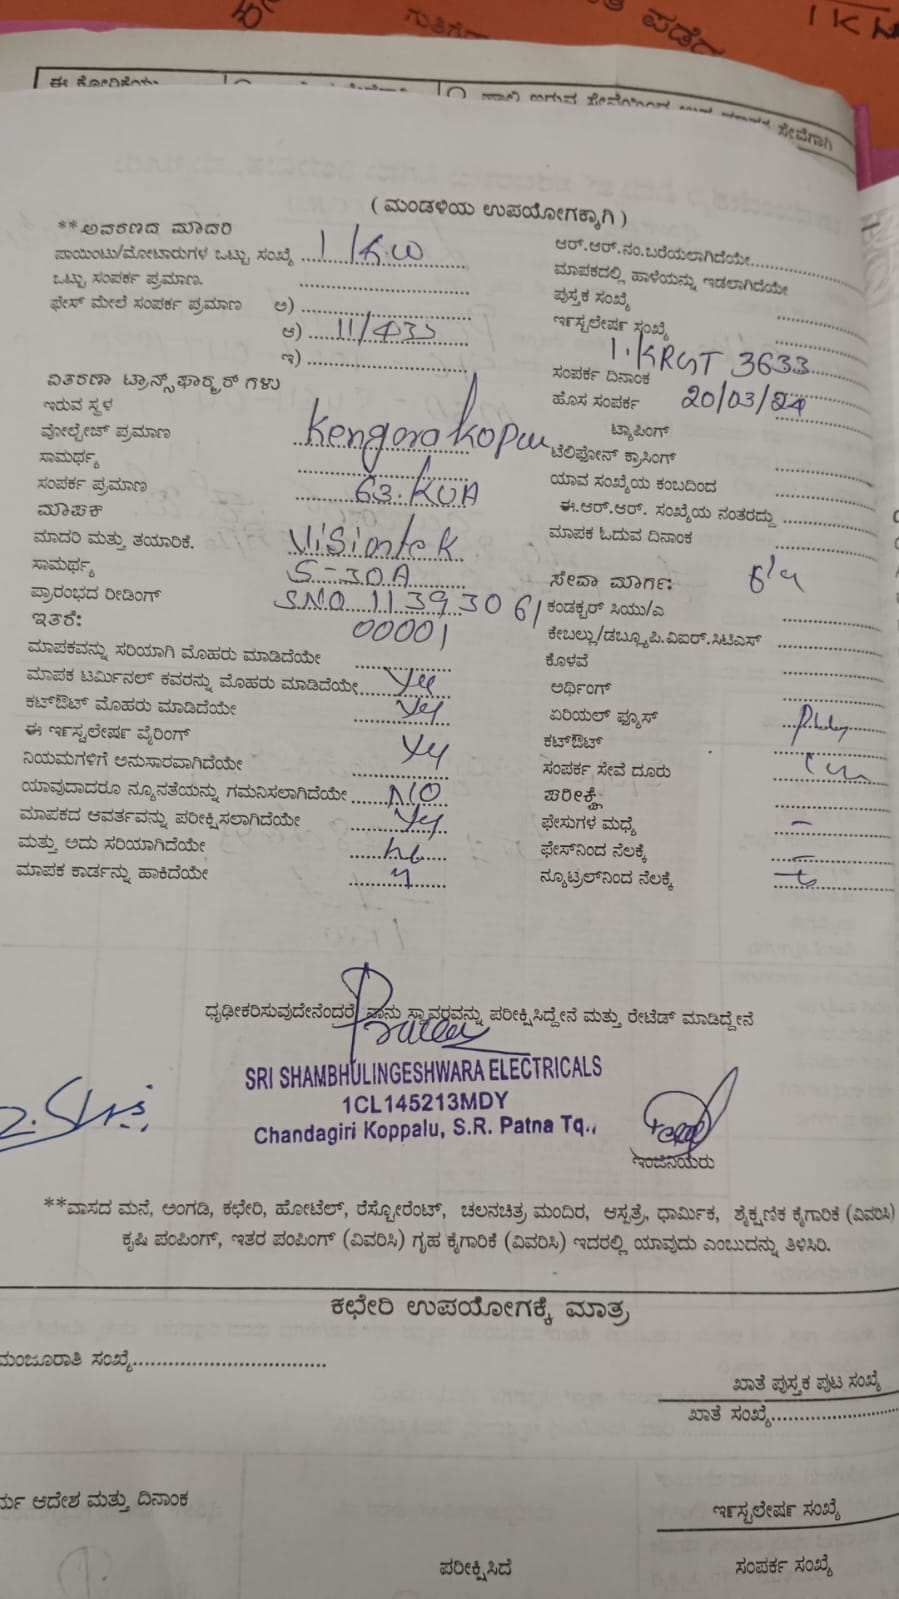 ಗುತಿಗೆ
ಪಡೆದ
1 K
ಈ ಕೋರಿಕೆಯು
ಸೇವೆಗಾಗಿ
( ಮಂಡಳಿಯ ಉಪಯೋಗಕ್ಕಾಗಿ )
**ಆವರಣದ ಮಾದರಿ
ಪಾಯಿಂಟು/ಮೋಟಾರುಗಳ ಒಟ್ಟು ಸಂಖ್ಯೆ 1 KW
ಒಟ್ಟು ಸಂಪರ್ಕ ಪ್ರಮಾಣ.
ಫೇಸ್ ಮೇಲೆ ಸಂಪರ್ಕ ಪ್ರಮಾಣ ಅ)
ಆ) 11/433
ಇ)
ವಿತರಣಾ ಟ್ರಾನ್ಸ್‌ಫಾರ್ಮರ್ ಗಳು
ಇರುವ ಸ್ಥಳ
ವೋಲ್ಟೇಜ್ ಪ್ರಮಾಣ
ಸಾಮರ್ಥ್ಯ
ಸಂಪರ್ಕ ಪ್ರಮಾಣ 63.KVA
ಮಾಪಕ
ಮಾದರಿ ಮತ್ತು ತಯಾರಿಕೆ. Visiontek
ಸಾಮರ್ಥ್ಯ 5-30A
ಪ್ರಾರಂಭದ ರೀಡಿಂಗ್ SNO 11393061
ಇತರೆ: 00001
ಮಾಪಕವನ್ನು ಸರಿಯಾಗಿ ಮೊಹರು ಮಾಡಿದೆಯೇ
ಮಾಪಕ ಟರ್ಮಿನಲ್ ಕವರನ್ನು ಮೊಹರು ಮಾಡಿದೆಯೇ
ಕಟ್‌ಔಟ್ ಮೊಹರು ಮಾಡಿದೆಯೇ
ಈ ಇನ್ಸ್ಟಲೇಷನ್ ವೈರಿಂಗ್
ನಿಯಮಗಳಿಗೆ ಅನುಸಾರವಾಗಿದೆಯೇ
ಯಾವುದಾದರೂ ನ್ಯೂನತೆಯನ್ನು ಗಮನಿಸಲಾಗಿದೆಯೇ NO
ಮಾಪಕದ ಆವರ್ತವನ್ನು ಪರೀಕ್ಷಿಸಲಾಗಿದೆಯೇ
ಮತ್ತು ಅದು ಸರಿಯಾಗಿದೆಯೇ
ಮಾಪಕ ಕಾರ್ಡನ್ನು ಹಾಕಿದೆಯೇ
ಆರ್.ಆರ್.ನಂ.ಬರೆಯಲಾಗಿದೆಯೇ
ಮಾಪಕದಲ್ಲಿ ಹಾಳೆಯನ್ನು ಇಡಲಾಗಿದೆಯೇ
ಪುಸ್ತಕ ಸಂಖ್ಯೆ
ಇನ್ಸ್ಟಲೇಷನ್ ಸಂಖ್ಯೆ
1. KRGT 3633
ಸಂಪರ್ಕ ದಿನಾಂಕ
ಹೊಸ ಸಂಪರ್ಕ 20/03/24
ಟ್ಯಾಪಿಂಗ್
ಟೆಲಿಫೋನ್ ಕ್ರಾಸಿಂಗ್
ಯಾವ ಸಂಖ್ಯೆಯ ಕಂಬದಿಂದ
ಈ.ಆರ್.ಆರ್. ಸಂಖ್ಯೆಯ ನಂತರದ್ದು
ಮಾಪಕ ಓದುವ ದಿನಾಂಕ
ಸೇವಾ ಮಾರ್ಗ:
ಕಂಡಕ್ಟರ್ ಸಿಯು/ಎ
ಕೇಬಲ್ಲು/ಡಬ್ಲ್ಯೂ.ಪಿ.ವಿಐರ್.ಸಿಟಿಎಸ್
ಕೊಳವೆ
ಅರ್ಥಿಂಗ್
ಏರಿಯಲ್ ಫ್ಯೂಸ್
ಕಟ್‌ಔಟ್
ಸಂಪರ್ಕ ಸೇವೆ ದೂರು
ಪರೀಕ್ಷೆ
ಫೇಸುಗಳ ಮಧ್ಯೆ
ಫೇಸ್‌ನಿಂದ ನೆಲಕ್ಕೆ
ನ್ಯೂಟ್ರಲ್‌ನಿಂದ ನೆಲಕ್ಕೆ
ಧೃಢೀಕರಿಸುವುದೇನೆಂದರೆ, ನಾನು ಸ್ಥಾವರವನ್ನು ಪರೀಕ್ಷಿಸಿದ್ದೇನೆ ಮತ್ತು ರೇಟೆಡ್ ಮಾಡಿದ್ದೇನೆ
SRI SHAMBHULINGESHWARA ELECTRICALS
1CL145213MDY
Chandagiri Koppalu, S.R. Patna Tq.,
ಇಂಜಿನಿಯರು
**ವಾಸದ ಮನೆ, ಅಂಗಡಿ, ಕಛೇರಿ, ಹೋಟೆಲ್, ರೆಸ್ಟೋರೆಂಟ್, ಚಲನಚಿತ್ರ ಮಂದಿರ, ಆಸ್ಪತ್ರೆ, ಧಾರ್ಮಿಕ, ಶೈಕ್ಷಣಿಕ ಕೈಗಾರಿಕೆ (ವಿವರಿಸಿ)
ಕೃಷಿ ಪಂಪಿಂಗ್, ಇತರ ಪಂಪಿಂಗ್ (ವಿವರಿಸಿ) ಗೃಹ ಕೈಗಾರಿಕೆ (ವಿವರಿಸಿ) ಇದರಲ್ಲಿ ಯಾವುದು ಎಂಬುದನ್ನು ತಿಳಿಸಿರಿ.
ಕಛೇರಿ ಉಪಯೋಗಕ್ಕೆ ಮಾತ್ರ
ಮಂಜೂರಾತಿ ಸಂಖ್ಯೆ
ಖಾತೆ ಪುಸ್ತಕ ಪುಟ ಸಂಖ್ಯೆ
ಖಾತೆ ಸಂಖ್ಯೆ
ಆದೇಶ ಮತ್ತು ದಿನಾಂಕ
ಇನ್ಸ್ಟಲೇಷನ್ ಸಂಖ್ಯೆ
ಪರೀಕ್ಷಿಸಿದೆ
ಸಂಪರ್ಕ ಸಂಖ್ಯೆ